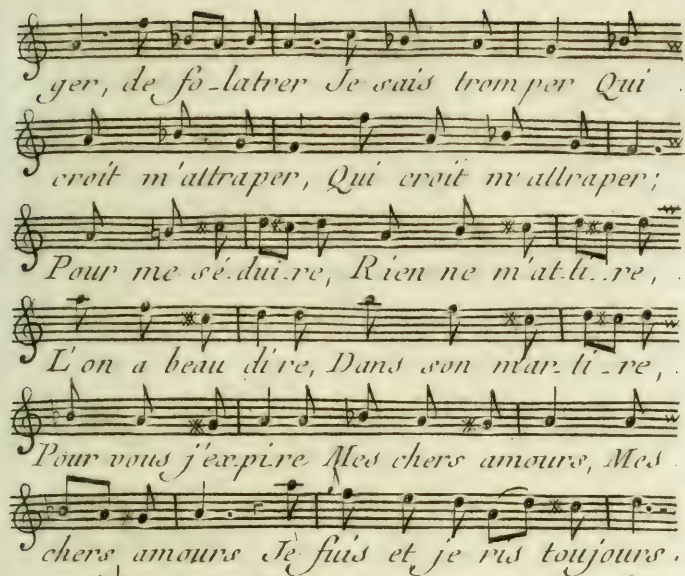 ger, de fo-latrer Je sais tromper Qui
croit m'attraper, Qui croit m'attraper;
Pour me sé-dui-re, Rien ne m'at-ti-re,
L'on a beau dire, Dans son mar-ti-re,
Pour vous j'expire Mes chers amours, Mes
chers amours Je fuis et je ris toujours.